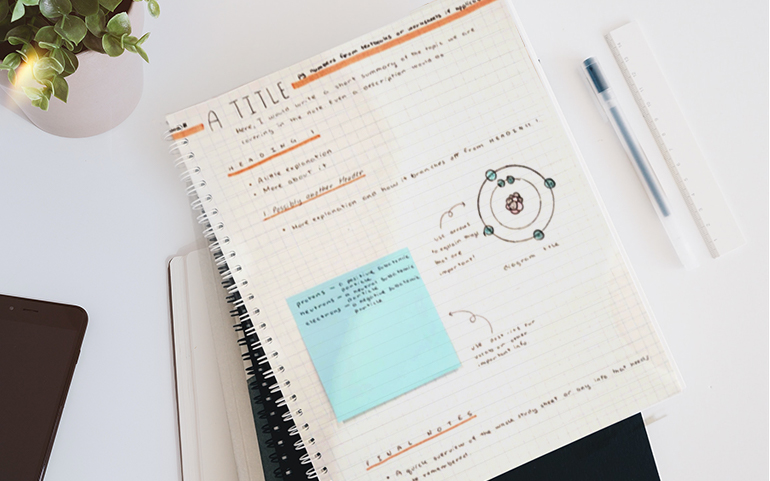 A TITLE
numbers from textbooks or worksheets if applicable
Here, I would write a short summary of the topic we are
covering in the note. Even a description would be
HEADING 1
• Acide explanation
• More about it
1. Possibly another Header
• More explanation and how it branches off from HEADING 1
use arrows
to explain things
that are
important!
Diagram title
protons - a positive substance
particle
neutrons - a neutral substance
particle
electrons - a negative substance
particle
use post-its for
extra
important info
FINAL NOTES
• A quick overview of the whole study sheet or key info that needs
be remembered.